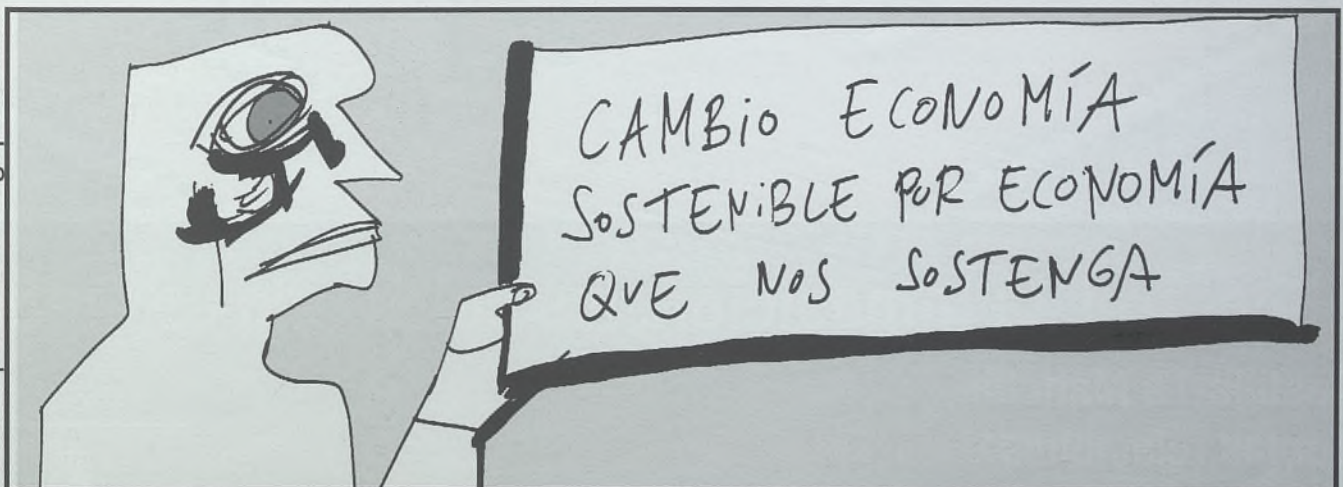 CAMBiO ECONOMÍA
SOSTENiBLE POR ECONOMÍA
QUE NOS SOSTENGA